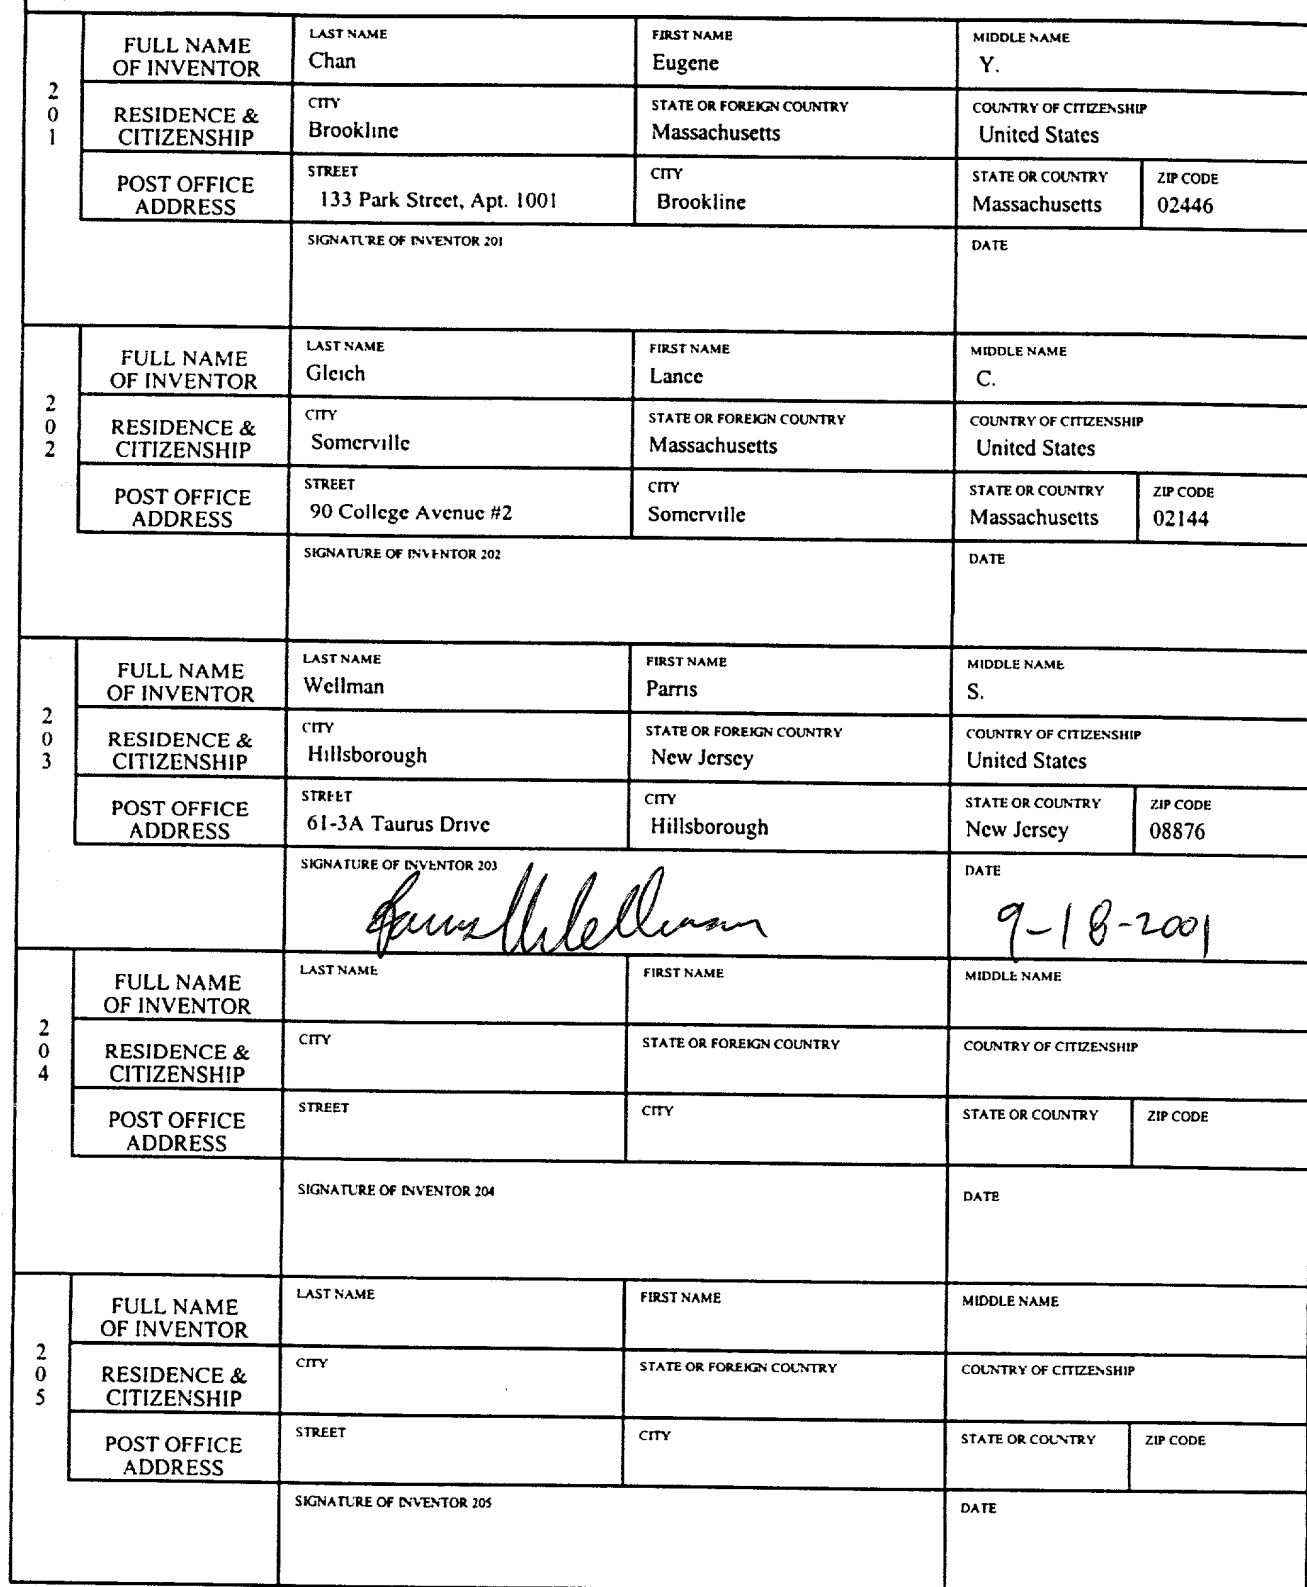 201
FULL NAME OF INVENTOR
LAST NAME
Chan
FIRST NAME
Eugene
MIDDLE NAME
Y.
RESIDENCE & CITIZENSHIP
CITY
Brookline
STATE OR FOREIGN COUNTRY
Massachusetts
COUNTRY OF CITIZENSHIP
United States
POST OFFICE ADDRESS
STREET
133 Park Street, Apt. 1001
CITY
Brookline
STATE OR COUNTRY
Massachusetts
ZIP CODE
02446
SIGNATURE OF INVENTOR 201
DATE
202
FULL NAME OF INVENTOR
LAST NAME
Gleich
FIRST NAME
Lance
MIDDLE NAME
C.
RESIDENCE & CITIZENSHIP
CITY
Somerville
STATE OR FOREIGN COUNTRY
Massachusetts
COUNTRY OF CITIZENSHIP
United States
POST OFFICE ADDRESS
STREET
90 College Avenue #2
CITY
Somerville
STATE OR COUNTRY
Massachusetts
ZIP CODE
02144
SIGNATURE OF INVENTOR 202
DATE
203
FULL NAME OF INVENTOR
LAST NAME
Wellman
FIRST NAME
Parris
MIDDLE NAME
S.
RESIDENCE & CITIZENSHIP
CITY
Hillsborough
STATE OR FOREIGN COUNTRY
New Jersey
COUNTRY OF CITIZENSHIP
United States
POST OFFICE ADDRESS
STREET
61-3A Taurus Drive
CITY
Hillsborough
STATE OR COUNTRY
New Jersey
ZIP CODE
08876
SIGNATURE OF INVENTOR 203
DATE
9-18-2001
204
FULL NAME OF INVENTOR
LAST NAME
FIRST NAME
MIDDLE NAME
RESIDENCE & CITIZENSHIP
CITY
STATE OR FOREIGN COUNTRY
COUNTRY OF CITIZENSHIP
POST OFFICE ADDRESS
STREET
CITY
STATE OR COUNTRY
ZIP CODE
SIGNATURE OF INVENTOR 204
DATE
205
FULL NAME OF INVENTOR
LAST NAME
FIRST NAME
MIDDLE NAME
RESIDENCE & CITIZENSHIP
CITY
STATE OR FOREIGN COUNTRY
COUNTRY OF CITIZENSHIP
POST OFFICE ADDRESS
STREET
CITY
STATE OR COUNTRY
ZIP CODE
SIGNATURE OF INVENTOR 205
DATE